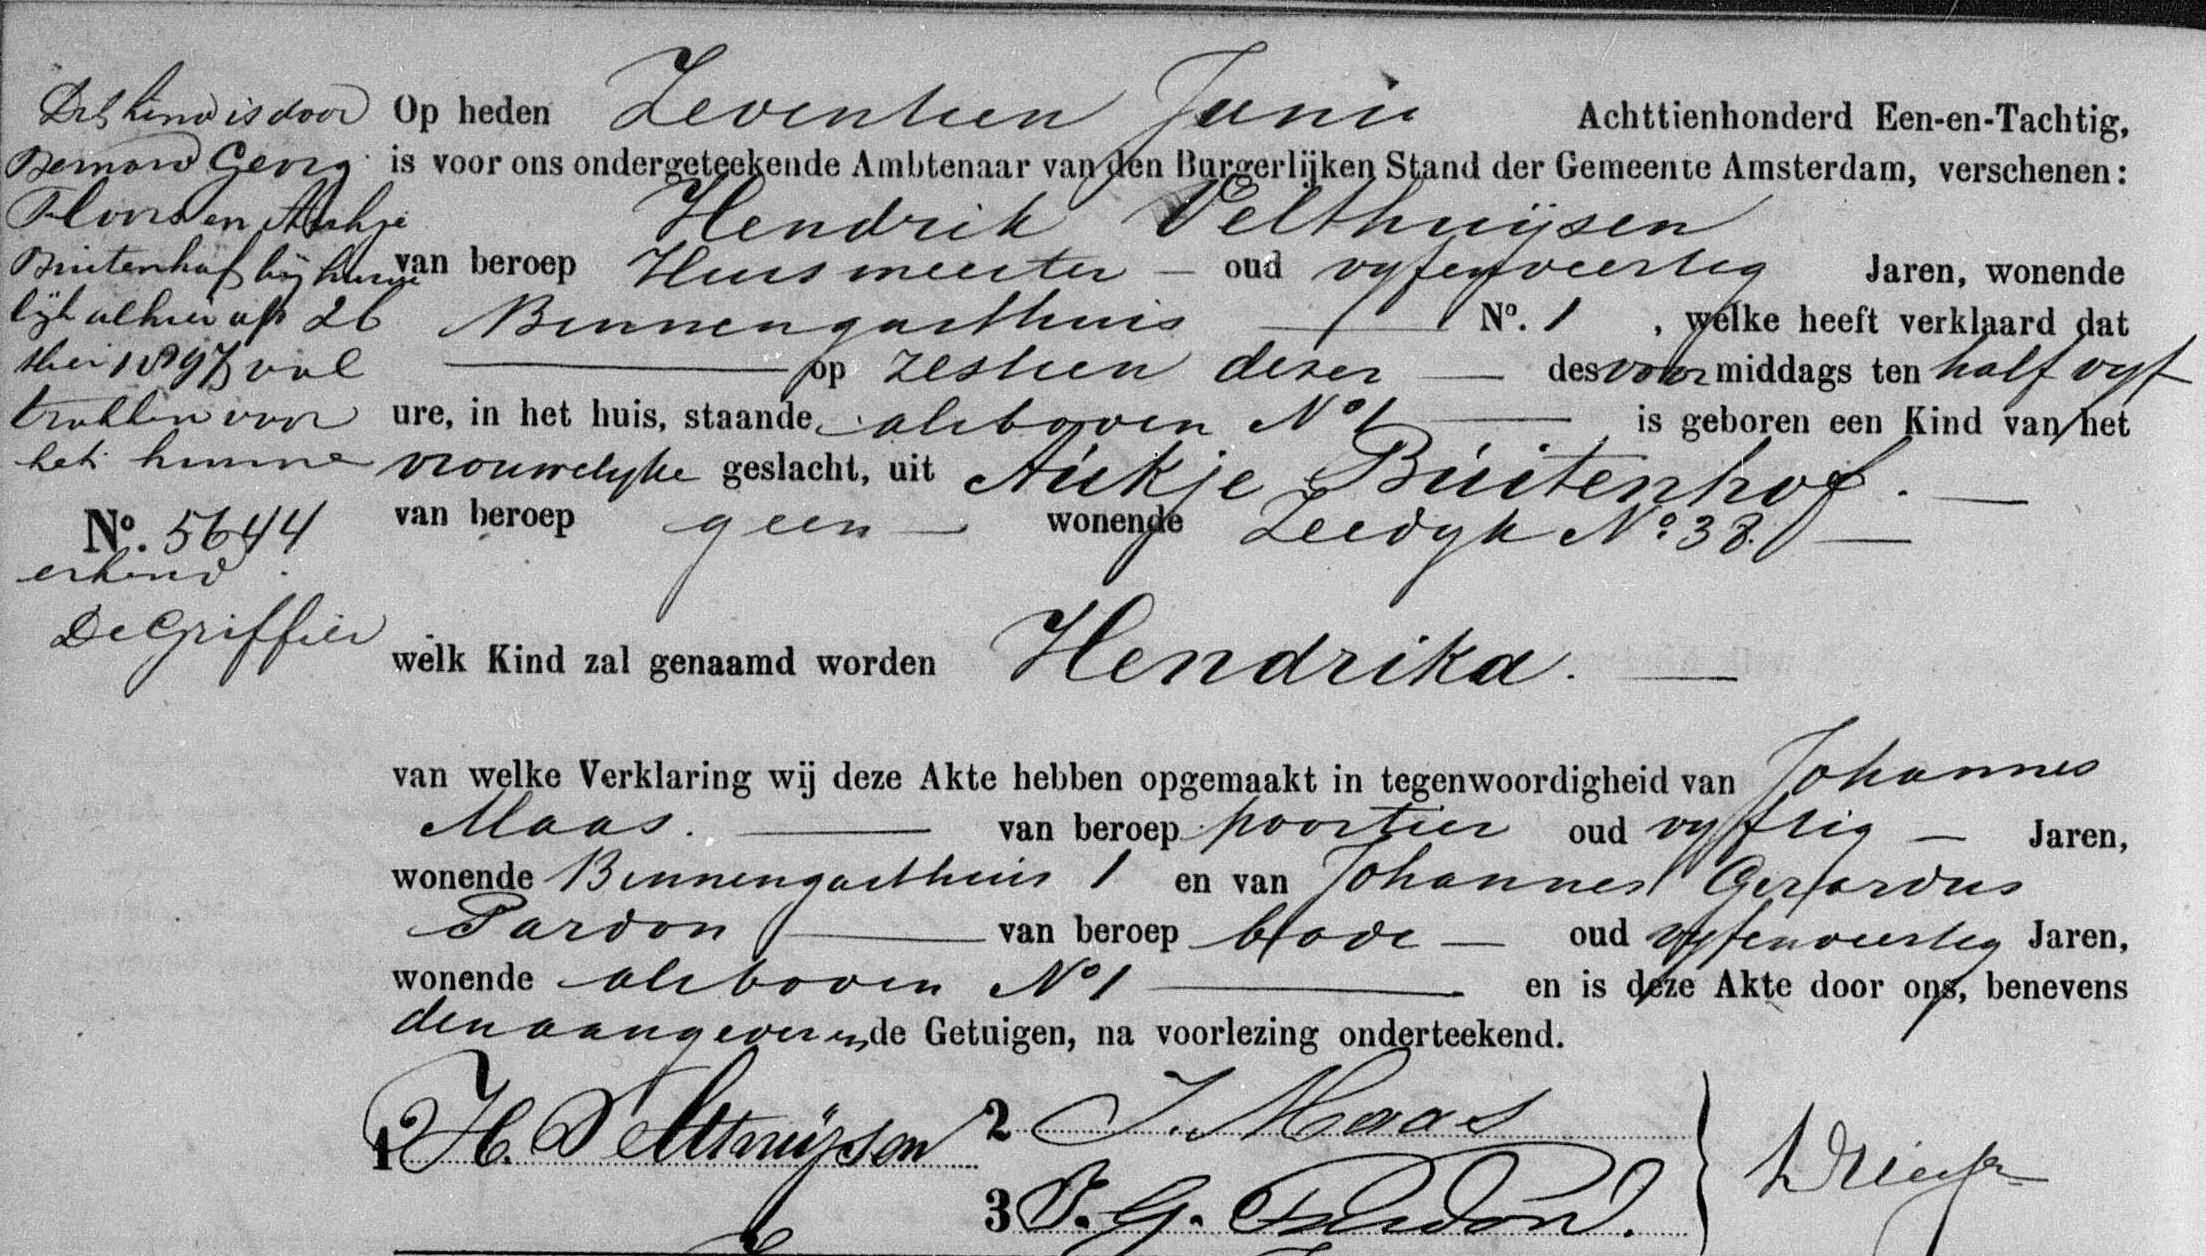 Dit kind is door
Bernard Georg
Floors en Aukje
Buitenhof bij huwe
lijk alhier op 26
Mei 1897 vol
trokken voor
het hunne
No. 5644
erkend.
De Griffier
Op heden Zeventien Junii Achttienhonderd Een-en-Tachtig,
is voor ons ondergeteekende Ambtenaar van den Burgerlijken Stand der Gemeente Amsterdam, verschenen:
Hendrik Velthuijsen
van beroep Huismeester — oud vyfenveertig Jaren, wonende
Binnengasthuis — No. 1, welke heeft verklaard dat
— op zestien dezer — des voormiddags ten half vyf
ure, in het huis, staande alsboven No 1 — is geboren een Kind van het
vrouwelyke geslacht, uit Aukje Buitenhof. —
van beroep geen — wonende Zeedyk No. 38. —
welk Kind zal genaamd worden Hendrika. —
van welke Verklaring wij deze Akte hebben opgemaakt in tegenwoordigheid van Johannes
Maas. — van beroep poortier oud vyftig — Jaren,
wonende Binnengasthuis 1 en van Johannes Gerardus
Pardon — van beroep bode — oud vyfenveertig Jaren,
wonende alsboven No 1 — en is deze Akte door ons, benevens
den aangever en de Getuigen, na voorlezing onderteekend.
1 H. Velthuijsen 2 J. Maas
3 J. G. Pardon.